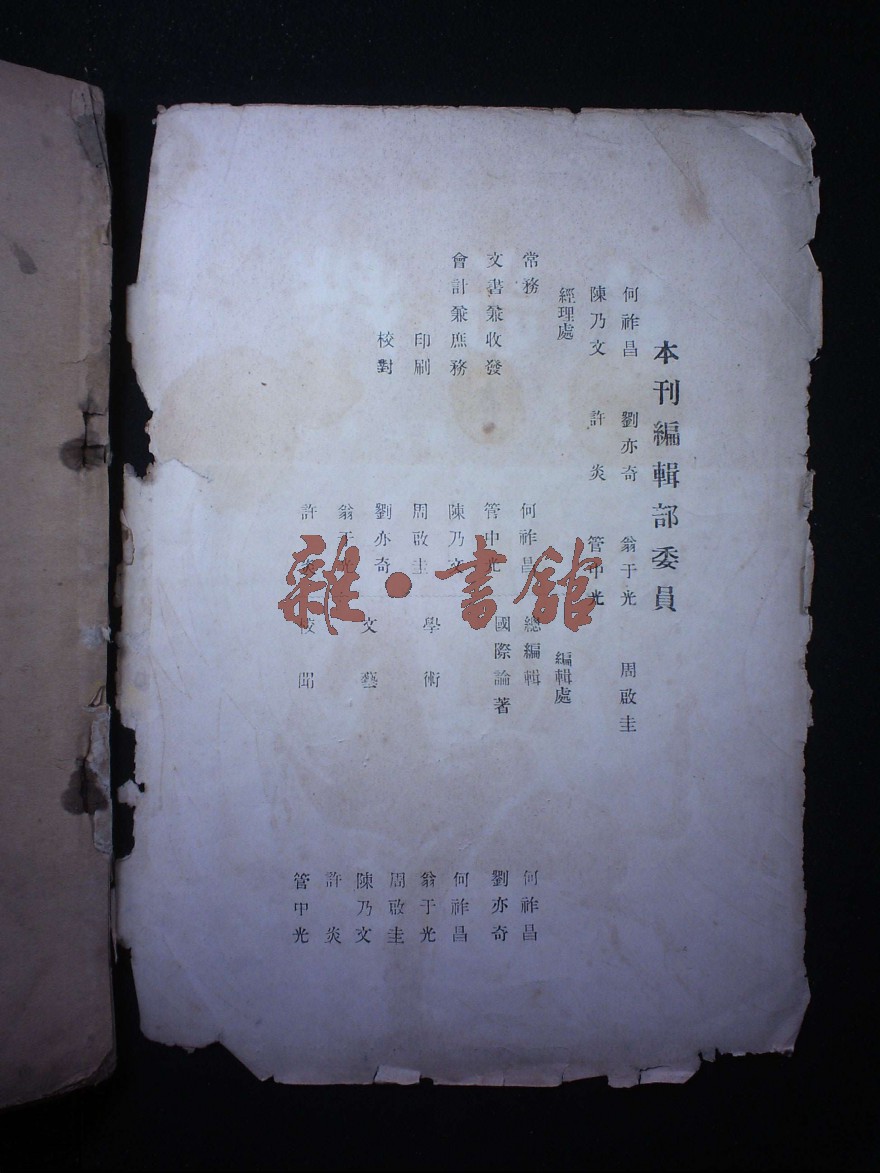 本刊編輯部委員
何祚昌 劉亦奇 翁于光 周啟圭
陳乃文 許炎 管中光
經理處
常務 何祚昌
文書兼收發 管中光
會計兼庶務 陳乃文
印刷 周啟圭
校對 劉亦奇
翁于光
許炎
編輯處
總編輯 何祚昌
國際論著 劉亦奇
何祚昌
學術 翁于光
周啟圭
文藝 陳乃文
許炎
校聞 管中光
雜·書館